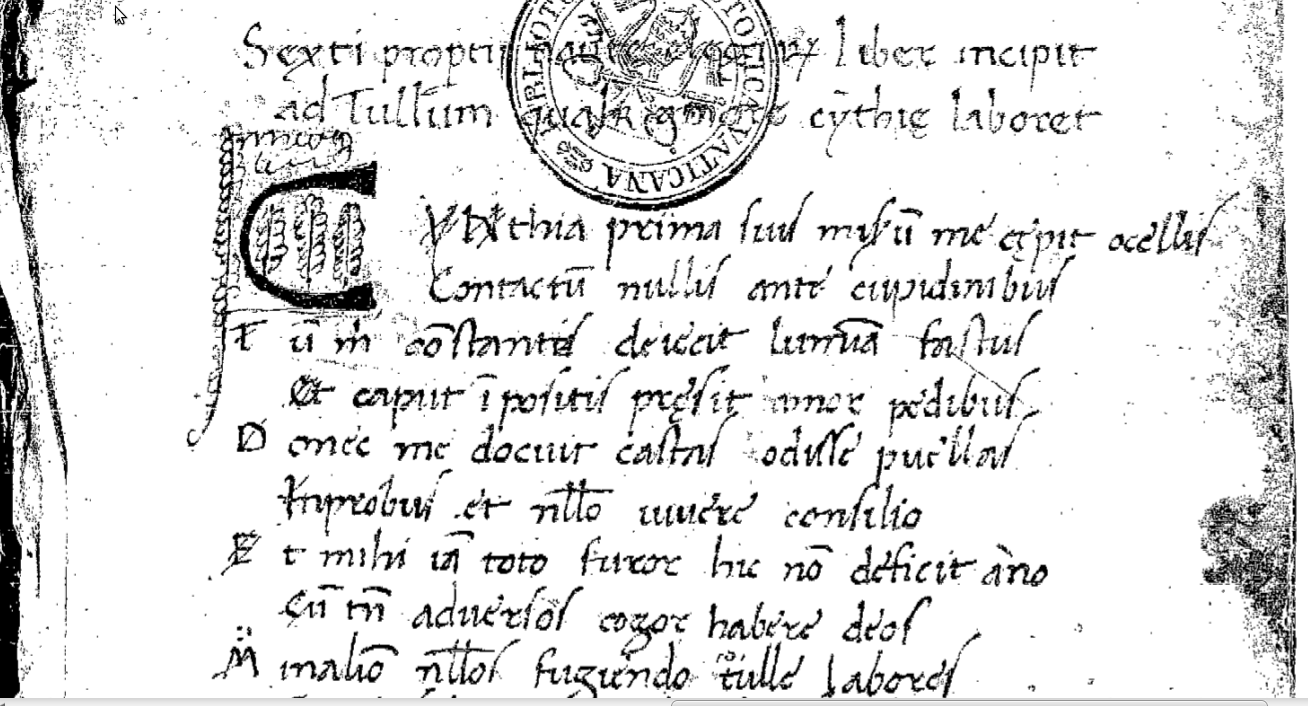 Sexti proptii naute elegiaꝝ liber incipit
ad Tullum qualr amore cỹthię laboret
CYNthia prima suis misẽꝝ me cępit ocellis
Contactũ nullis ante cupidinibus
Tũ m̃ cõstantis deiecit lumĩa fastus
Et caput ĩpositis pręssit amor pedibus
Donec me docuit castas odisse puellas
Inprobus et nll̃o uiuere consilio
Et mihi iã toto furor hic nõ deficit ãno
Cũ tñ aduersos cogor habere deos
Minaliõ nll̃os fugiendo tulle labores
BIBLIOT APOSTOLICA VATICANA